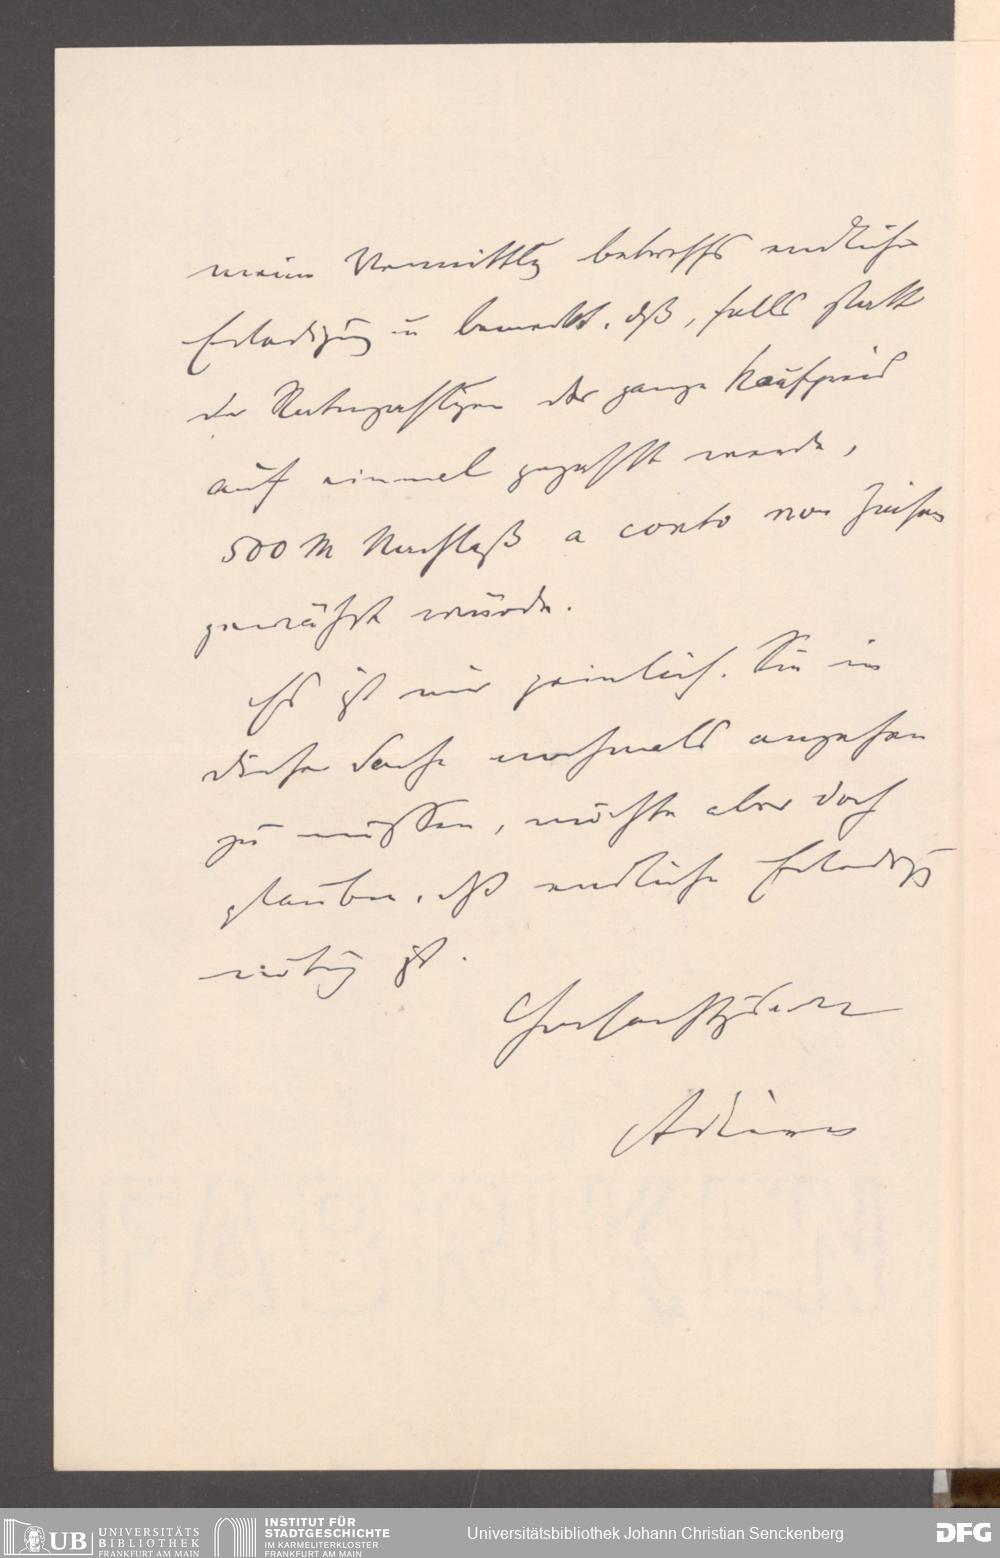 meine Vermittlg betreffs endliche
Erledigung u bemerkt, dß, falls statt
der Ratenzahlgen der ganze Kaufpreis
auf einmal gezahlt werde,
500 M Nachlaß a conto von Zinsen
gewährt würde.
Es ist mir peinlich, Sie in
dieser Sache nochmals angehen
zu müssen, möchte aber doch
glauben, dß endliche Erledigg
nötig ist.
Hochachtgsvoll
Adickes
UB
UNIVERSITÄTS
BIBLIOTHEK
FRANKFURT AM MAIN
INSTITUT FÜR
STADTGESCHICHTE
IM KARMELITERKLOSTER
FRANKFURT AM MAIN
Universitätsbibliothek Johann Christian Senckenberg
DFG